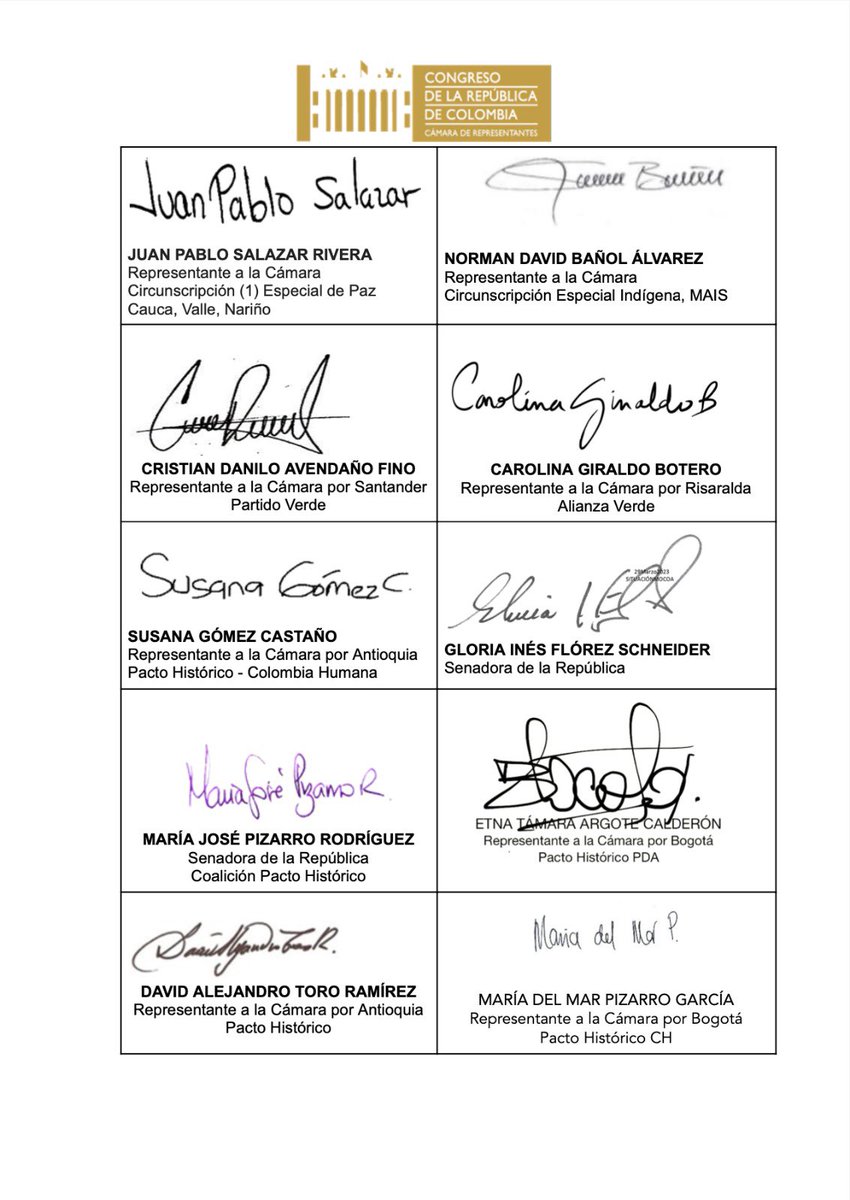 CONGRESO
DE LA REPÚBLICA
DE COLOMBIA
CÁMARA DE REPRESENTANTES
Juan Pablo Salazar
JUAN PABLO SALAZAR RIVERA
Representante a la Cámara
Circunscripción (1) Especial de Paz
Cauca, Valle, Nariño
NORMAN DAVID BAÑOL ÁLVAREZ
Representante a la Cámara
Circunscripción Especial Indígena, MAIS
CRISTIAN DANILO AVENDAÑO FINO
Representante a la Cámara por Santander
Partido Verde
Carolina Giraldo B
CAROLINA GIRALDO BOTERO
Representante a la Cámara por Risaralda
Alianza Verde
Susana Gómez C.
SUSANA GÓMEZ CASTAÑO
Representante a la Cámara por Antioquia
Pacto Histórico - Colombia Humana
SITUACIÓN MOCOA
GLORIA INÉS FLÓREZ SCHNEIDER
Senadora de la República
María José Pizarro R.
MARÍA JOSÉ PIZARRO RODRÍGUEZ
Senadora de la República
Coalición Pacto Histórico
ETNA TÁMARA ARGOTE CALDERÓN
Representante a la Cámara por Bogotá
Pacto Histórico PDA
DAVID ALEJANDRO TORO RAMÍREZ
Representante a la Cámara por Antioquia
Pacto Histórico
Maria del Mar P.
MARÍA DEL MAR PIZARRO GARCÍA
Representante a la Cámara por Bogotá
Pacto Histórico CH